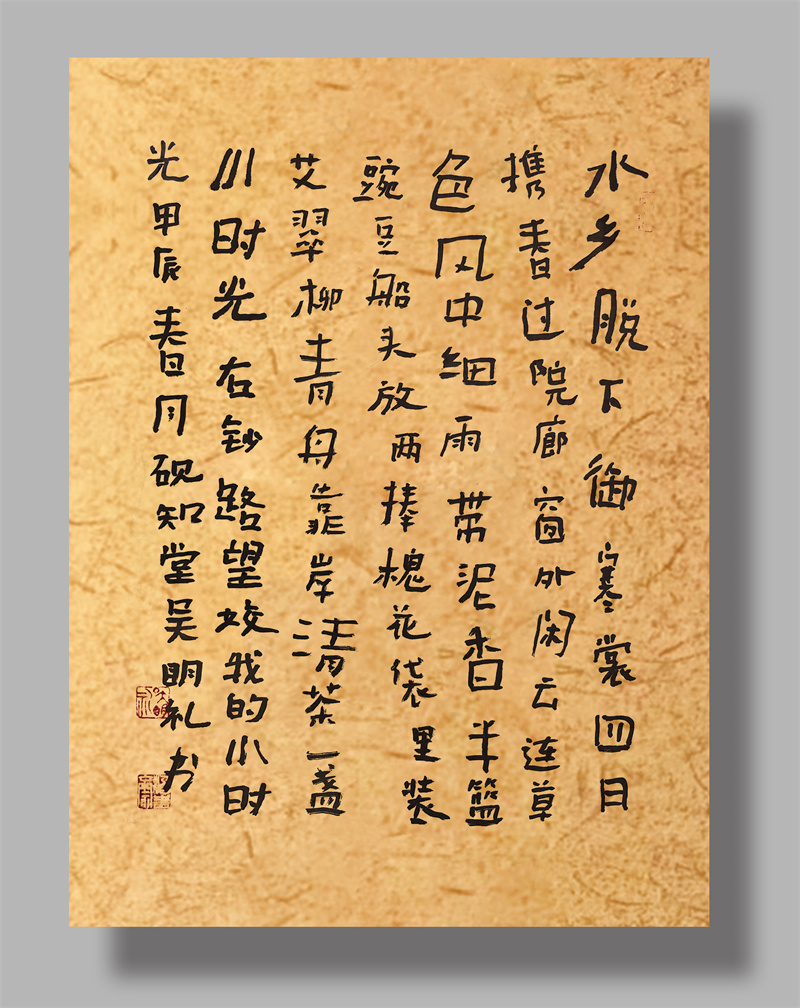 水乡脱下御寒裳四日
携春过院廊窗外闲云连草
色风中细雨带泥香半篮
豌豆船头放两捧槐花袋里装
艾翠柳青舟靠岸清茶一盏
小时光 右钞路望姣我的小时
光甲辰春月砚知堂吴明礼书